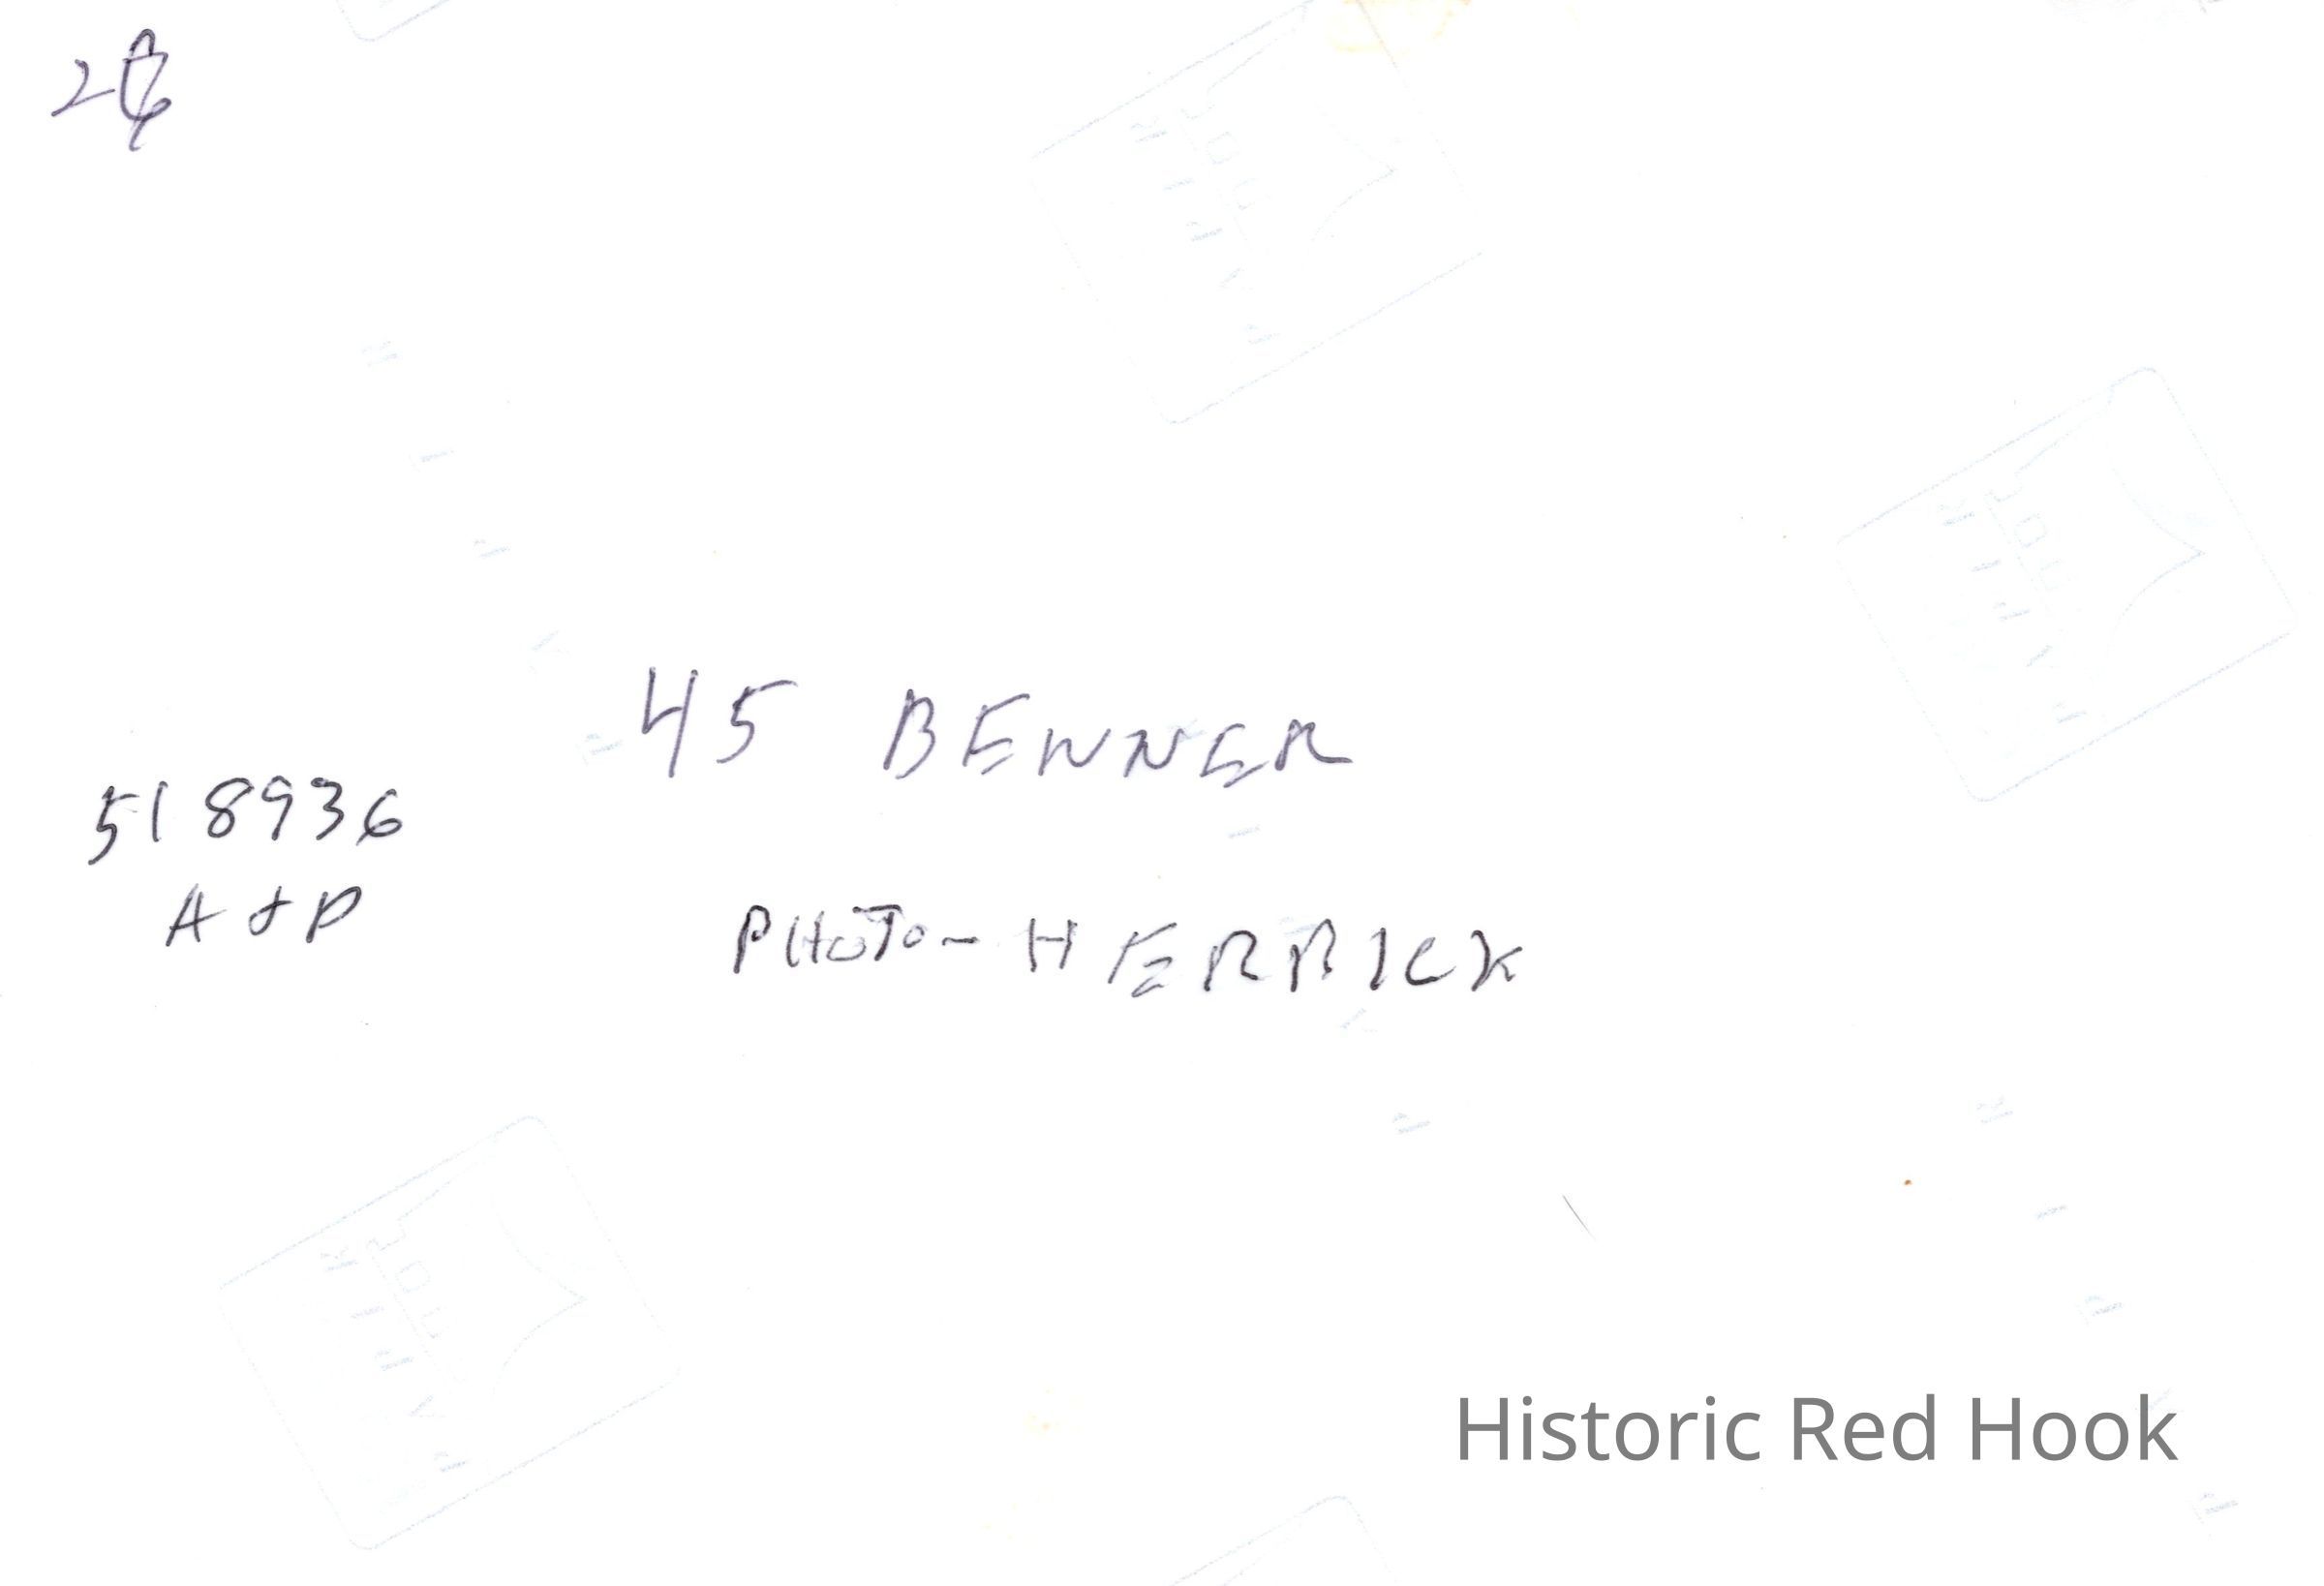 45 BENNER
518936
A & D
PHOTO - HERRICK
Historic Red Hook